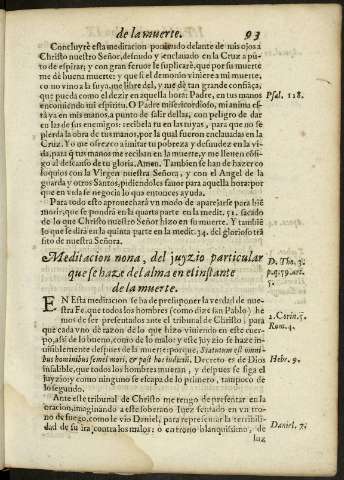 de la muerte. 93
Concluyrè esta meditacion poniendo delante de mis ojos a
Christo nuestro Señor, desnudo y enclauado en la Cruz a pũ-
to de espirar; y con gran feruor le suplicarè, que por su muerte
me dè buena muerte: y que si el demonio viniere a mi muerte,
como vino a la suya, me libre del, y me dè tan grande confiãça,
que pueda como el dezir en aquella hora: Padre, en tus manos Psal. 118.
encomiendo mi espiritu. O Padre misericordioso, mi anima es-
tà ya en mis manos, a punto de salir dellas, con peligro de dar
en las de sus enemigos: recibela tu en las tuyas, para que no se
pierda la obra de tus manos, por la qual fueron enclauadas en la
Cruz. Yo me ofrezco a imitar tu pobreza y desnudez en la vi-
da, para q̃ tus manos me reciban en la muerte, y me lleuen cõsi-
go al descanso de tu gloria, Amen. Tambien se han de hazer co-
loquios con la Virgen nuestra Señora, y con el Angel de la
guarda y otros Santos, pidiendoles fauor para aquella hora: por
que en vida se negocia lo que entonces ayuda.
Para todo esto aprouecharà vn modo de aparejarse para biẽ
morir, que se pondrà en la quarta parte en la medit. 51. sacado
de lo que Christo nuestro Señor hizo en su muerte. Y tambiẽ
lo que se dirà en la quinta parte en la medit. 34. del glorioso trã
sito de nuestra Señora.
Meditacion nona, del juyzio particular D. Tho. 3.
que se haze del alma en el instante p. q. 59. art.
de la muerte. 5.
EN Esta meditacion se ha de presuponer la verdad de nue-
stra Fe, que todos los hombres (como dize san Pablo) he
mos de ser presentados ante el tribunal de Christo; para 2. Corin. 5.
que cada vno dè razon de lo que hizo viuiendo en este cuer- Rom. 4.
po, assi de lo bueno, como de lo malo: y este juyzio se haze in-
uisiblemente despues de la muerte: porque, Statutum est omni-
bus hominibus semel mori, & post hoc iudicium. Decreto es de Dios Hebr. 9.
infalible, que todos los hombres mueran, y despues se siga el
juyzio: y como ninguno se escapa de lo primero, tampoco de
lo segundo.
Ante este tribunal de Christo me tengo de presentar en la
oracion, imaginando a este soberano Iuez sentado en vn tro-
no de fuego, como le vio Daniel, para representar la terribili- Daniel. 7.
dad de su ira contra los malos: o en trono blanquissimo, de
luz